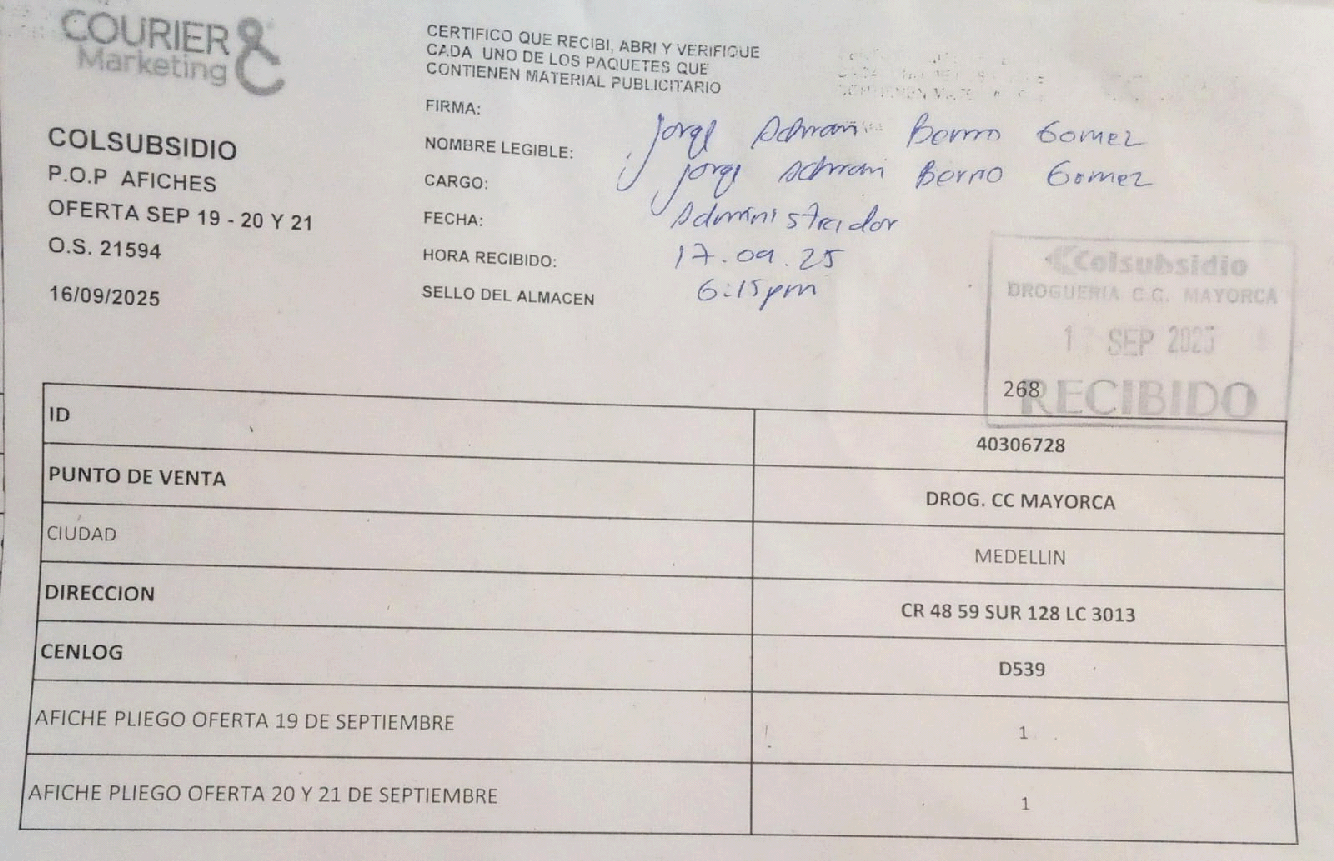 COURIER
Marketing
COLSUBSIDIO
P.O.P AFICHES
OFERTA SEP 19 - 20 Y 21
O.S. 21594
16/09/2025
CERTIFICO QUE RECIBI, ABRI Y VERIFIQUE
CADA UNO DE LOS PAQUETES QUE
CONTIENEN MATERIAL PUBLICITARIO
FIRMA: Jorge Gomez
NOMBRE LEGIBLE: Jorge Gomez
CARGO: Administrador
FECHA: 17.09.25
HORA RECIBIDO: 6:15pm
SELLO DEL ALMACEN
Colsubsidio
DROGUERIA C.C. MAYORCA
SEP 2025
RECIBIDO
268
ID 40306728
PUNTO DE VENTA DROG. CC MAYORCA
CIUDAD MEDELLIN
DIRECCION CR 48 59 SUR 128 LC 3013
CENLOG D539
AFICHE PLIEGO OFERTA 19 DE SEPTIEMBRE 1
AFICHE PLIEGO OFERTA 20 Y 21 DE SEPTIEMBRE 1